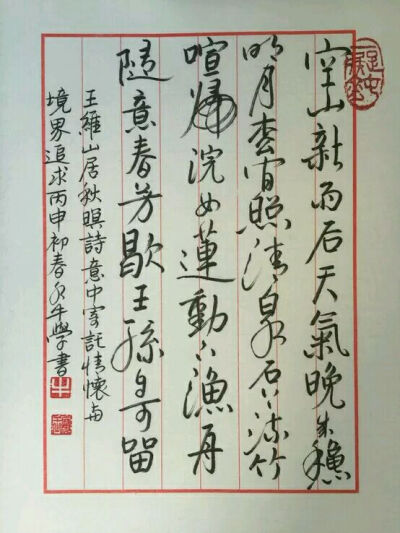 空山新雨后天氣晚来穐
明月枩間照清泉石上流竹
喧歸浣女蓮動下漁舟
隨意春芳歇王孫自可留
王維山居秋暝詩意中寄託情懷与
境界追求丙申初春牛學書